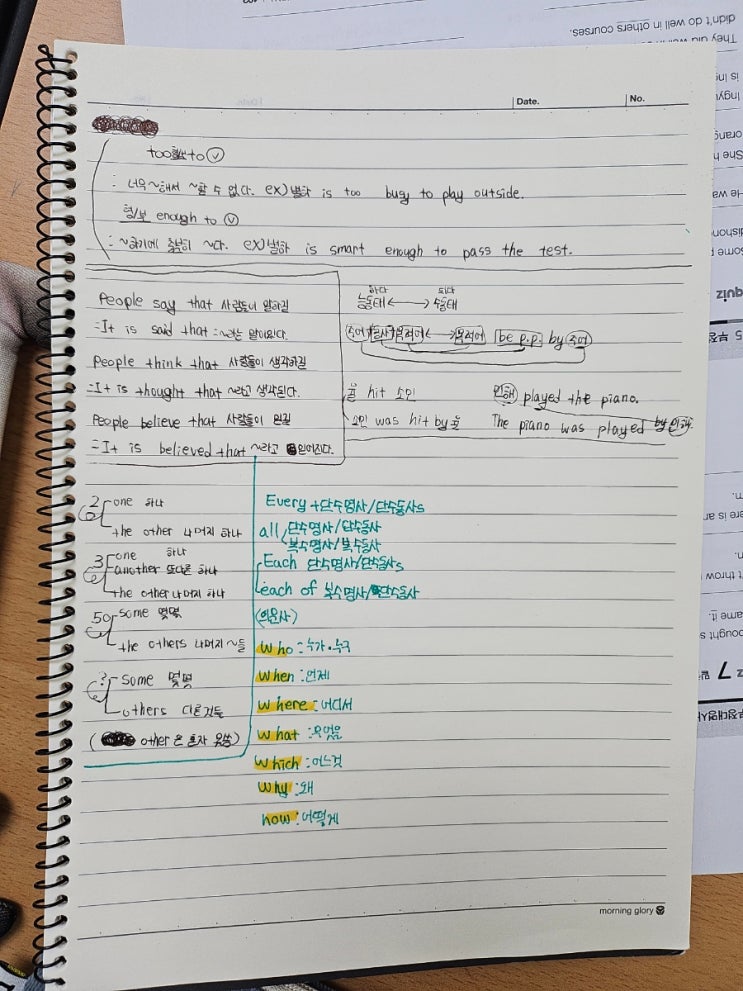 didn't do well in others courses.
Date.
No.
too to ⓥ
: 너무 ~해서 ~할 수 없다. ex) 별하 is too busy to play outside.
형/부 enough to ⓥ
: ~하기에 충분히 ~다. ex) 별하 is smart enough to pass the test.
People say that 사람들이 말하길
=It is said that
People think that 사람들이 생각하길
=It is thought that ~라고 생각된다.
People believe that 사람들이 믿길
=It is believed that ~라고 믿어진다.
하다 되다
능동태 ↔ 수동태
주어 동사 목적어 ↔ 목적어 be p.p. by 주어
hit 소민
소민 was hit by
민해 played the piano.
The piano was played by 민해.
2 one 하나
the other 나머지 하나
3 one 하나
another 또다른 하나
the other 나머지 하나
50 some 몇몇
the others 나머지 ~들
? some 몇몇
others 다른것들
( other 은 혼자 못씀)
Every + 단수명사/단수동사s
all 단수명사/단수동사
복수명사/복수동사
Each 단수명사/단수동사s
each of 복수명사/단수동사
(의문사)
who : 누가·누구
when : 언제
where : 어디서
what : 무엇을
which : 어느것
why : 왜
how : 어떻게
morning glory
quiz
7